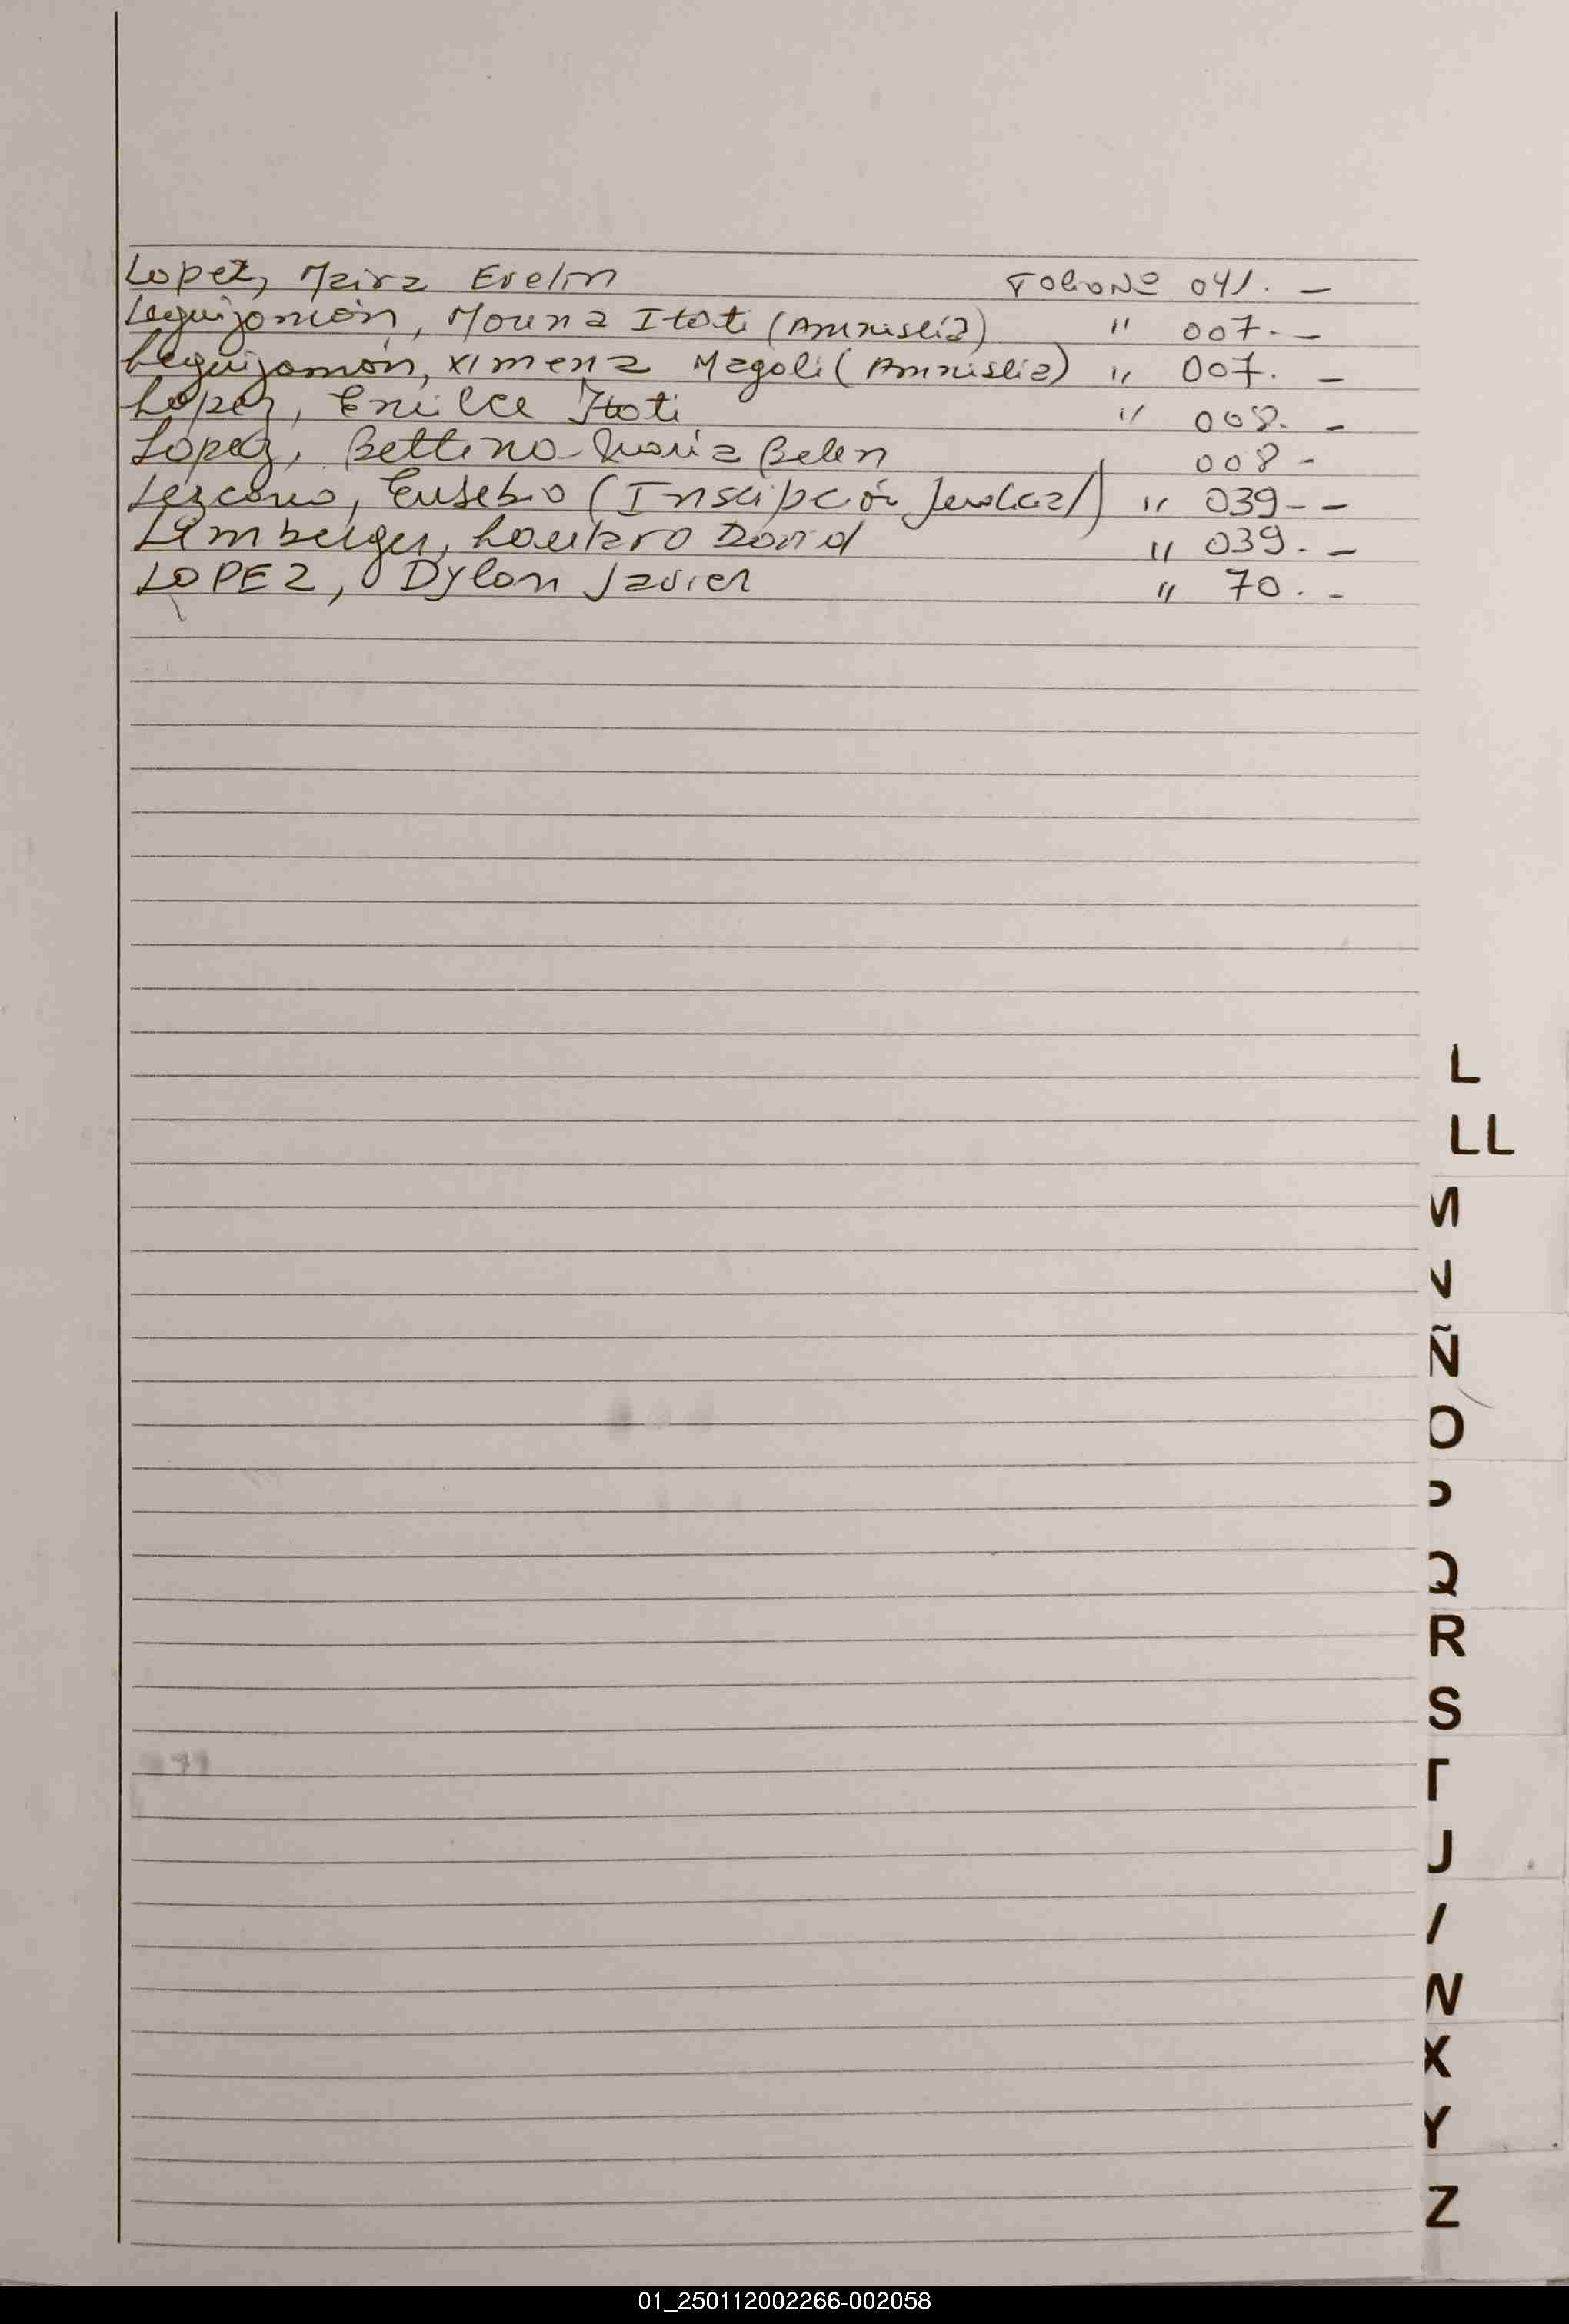 Lopez, Maira Evelin Folio Nº 041. —
Leguizamón, Morena Itati (Amnistía) " 007. —
Leguizamón, Ximena Magali (Amnistia) " 007. —
Lopez, Enilce Itati " 008. -
Lopez, Bettina Maria Belen 008 -
Lezcano, Eusebio (Inscipción Judicial) " 039 - -
Lemberger, Lautaro David " 039. -
LOPEZ, Dylan Javier " 70. -
L
LL
M
N
Ñ
O
P
Q
R
S
T
U
V
W
X
Y
Z
01_250112002266-002058